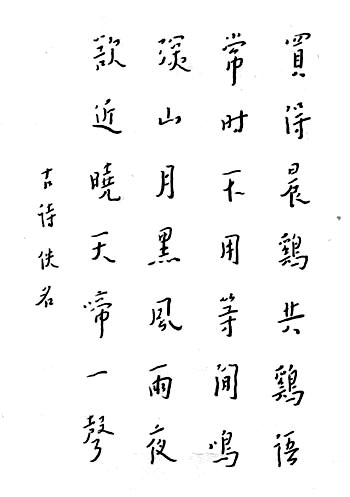 買得晨鷄共鷄語
常时不用等间鳴
深山月黑風雨夜
欲近曉天啼一聲
古诗佚名